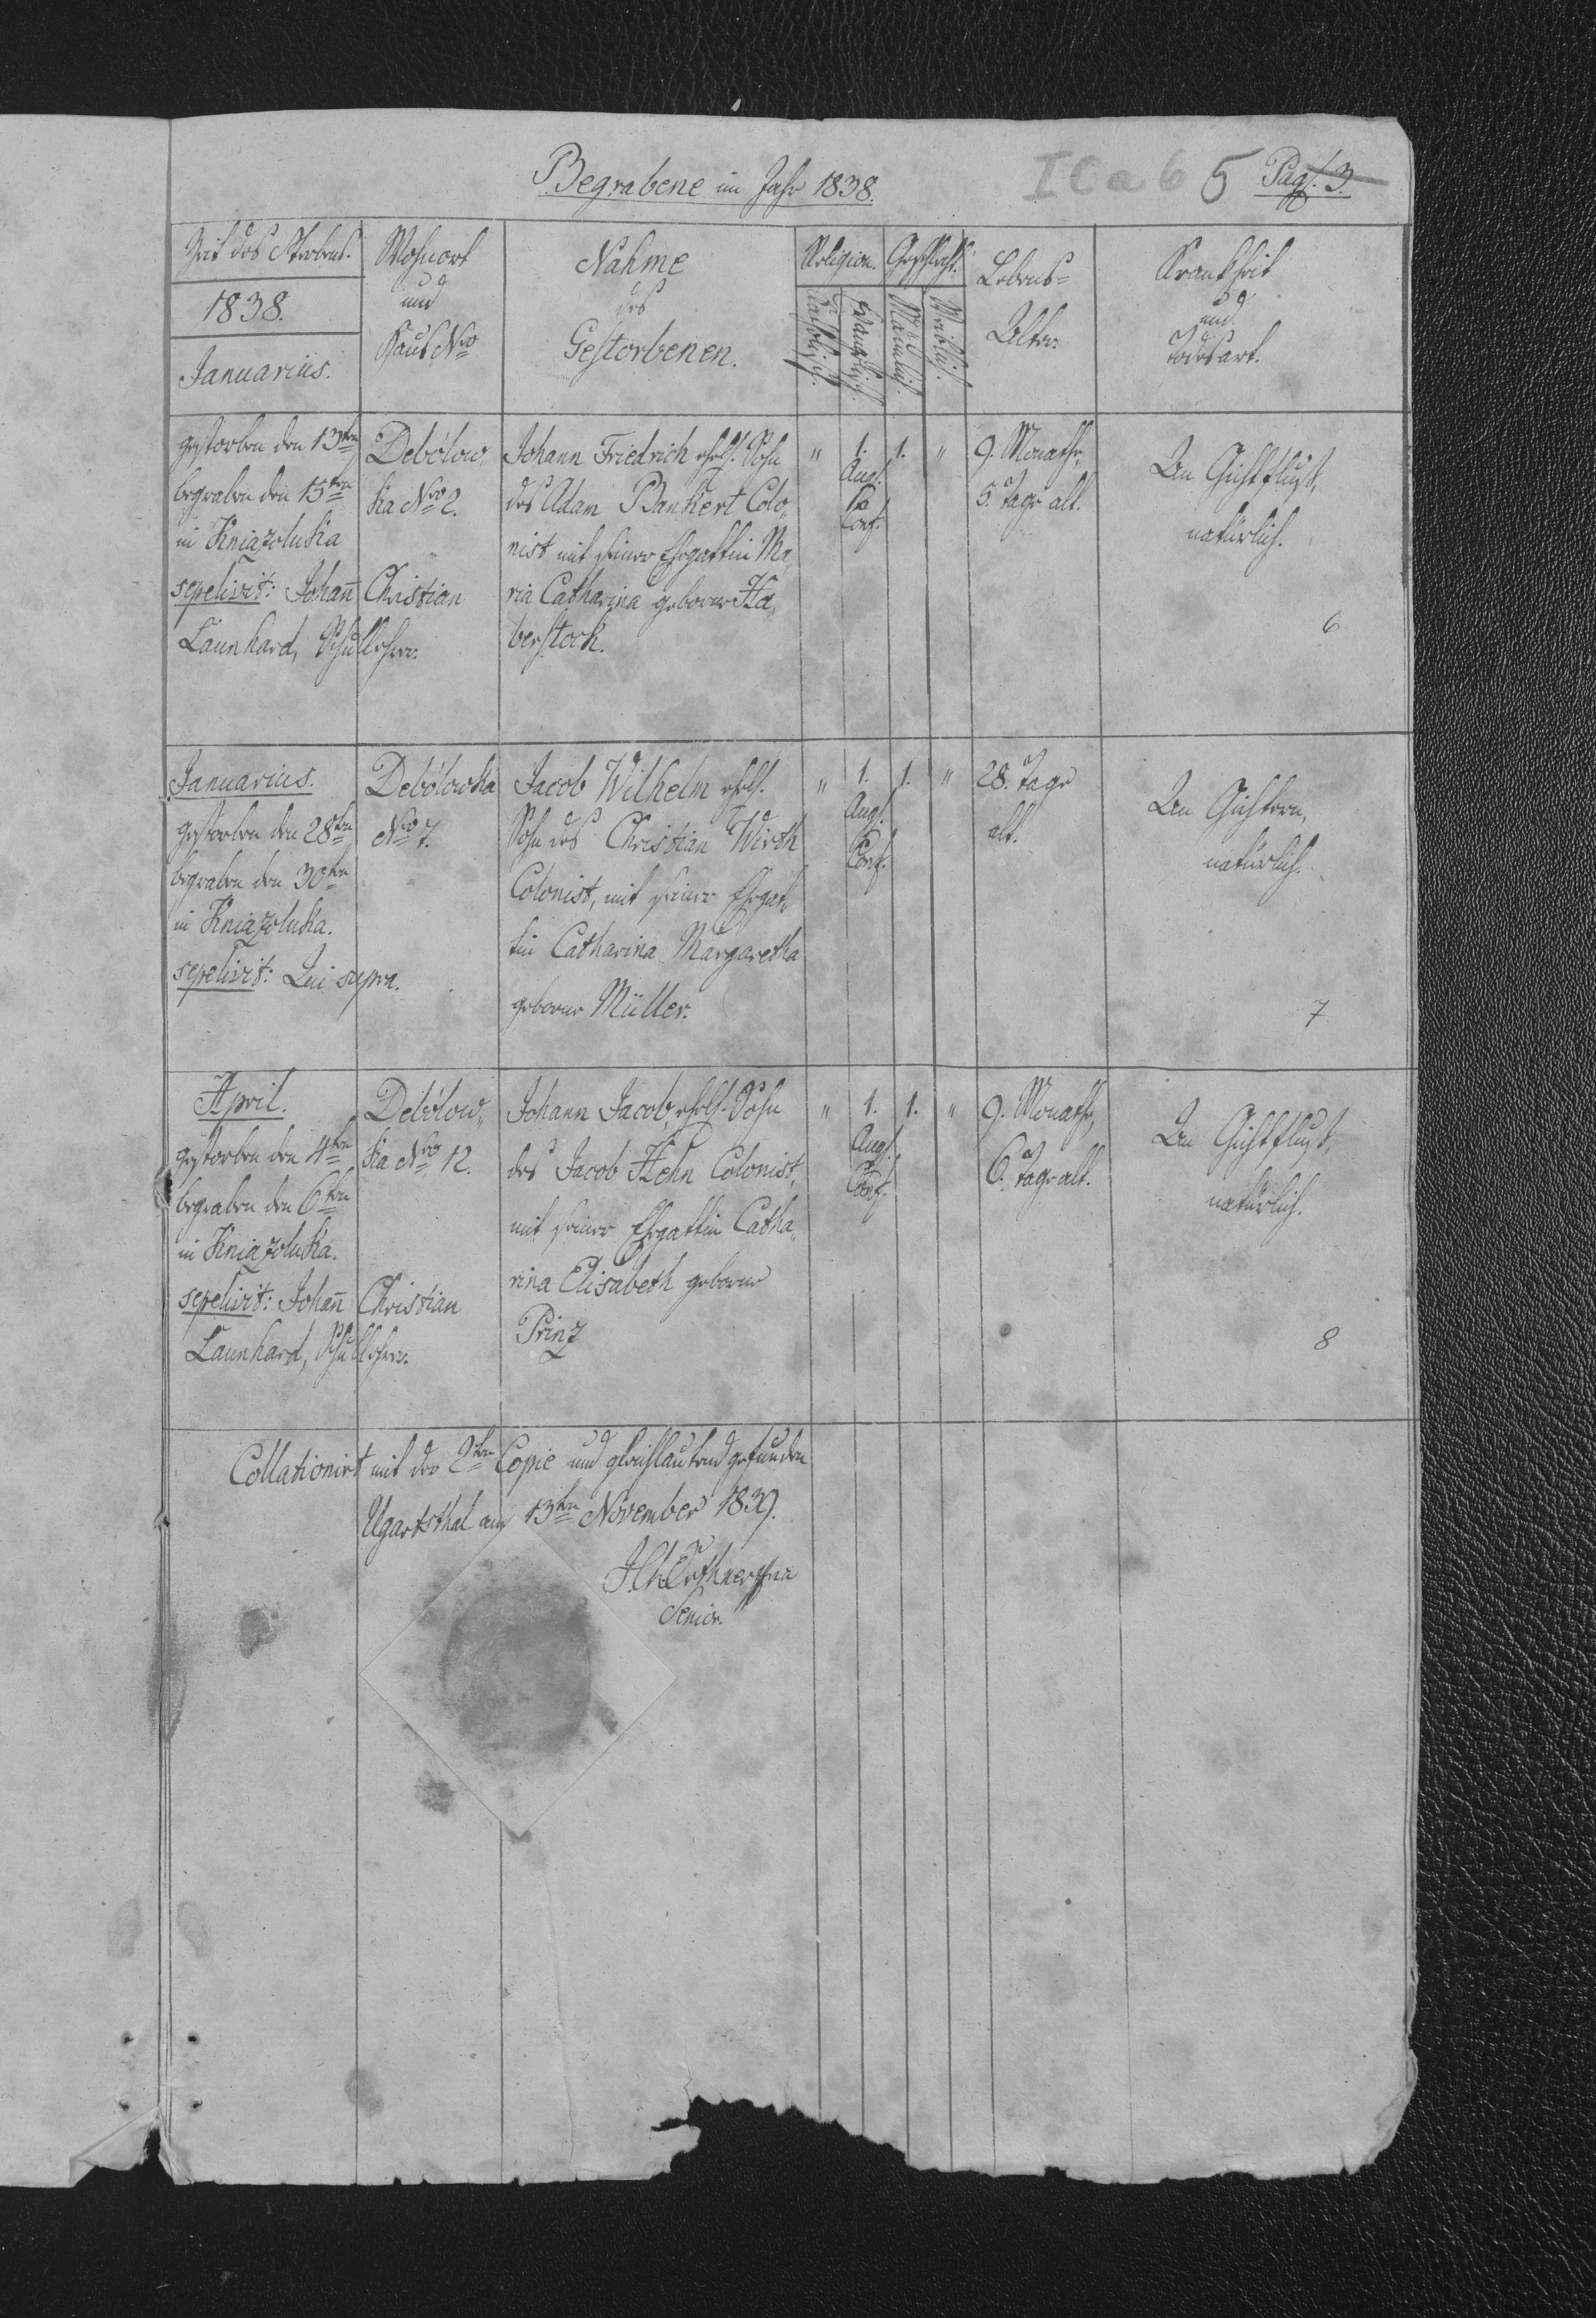 Begrabene im Jahr 1838.
I C a 6 5 Pag. 3.
Zeit des Sterbens.
1838.
Januarius.
Wohnort
und
Haus Nro
Nahme
des
Gestorbenen.
Religion.
Katholisch.
Evangelisch.
Geschlecht.
Männlich.
Weiblich.
Lebens=
Alter.
Krankheit
und
Todesart.
gestorben den 13ten
begraben den 15ten
in Kniazoluka
sepelivit: Johañ Christian
Launhard, Schullehrer.
Debólow„
ka Nro 2.
Johann Friedrich ehel. Sohn
des Adam Bankert Colo„
nist mit seiner Ehegattin Ma„
ria Catharina geborne Ha„
berstock.
„ 1. 1. „
Augs.
Conf.
9. Monathe,
5. Tage alt.
An Gichtfluß,
natürlich.
6
Januarius.
gestorben den 28ten
begraben den 30ten
in Kniazoluka.
sepelivit: Qui supra.
Debólowka
Nro 7.
Jacob Wilhelm ehel.
Sohn des Christian Wirth
Colonist, mit seiner Ehegat„
tin Catharina Margaretha
geborne Müller.
„ 1. 1. „
Augs.
Conf.
28. Tage
alt.
An Gichtern,
natürlich.
7
April.
gestorben den 4ten
begraben den 6ten
in Kniazoluka.
sepelivit: Johañ Christian
Launhard, Schullehrer.
Debólow„
ka Nro 12.
Johann Jacob, ehel. Sohn
des Jacob Hehn Colonist,
mit seiner Ehegattin Catha„
rina Elisabeth geborne
Prinz
„ 1. 1. „
Augs.
Conf.
9. Monathe,
6. Tage alt.
An Gichtfluß,
natürlich.
8
Collationirt mit der 2ten Copie und gleichlautend gefunden
Ugartsthal am 13ten November 1839.
Senior.